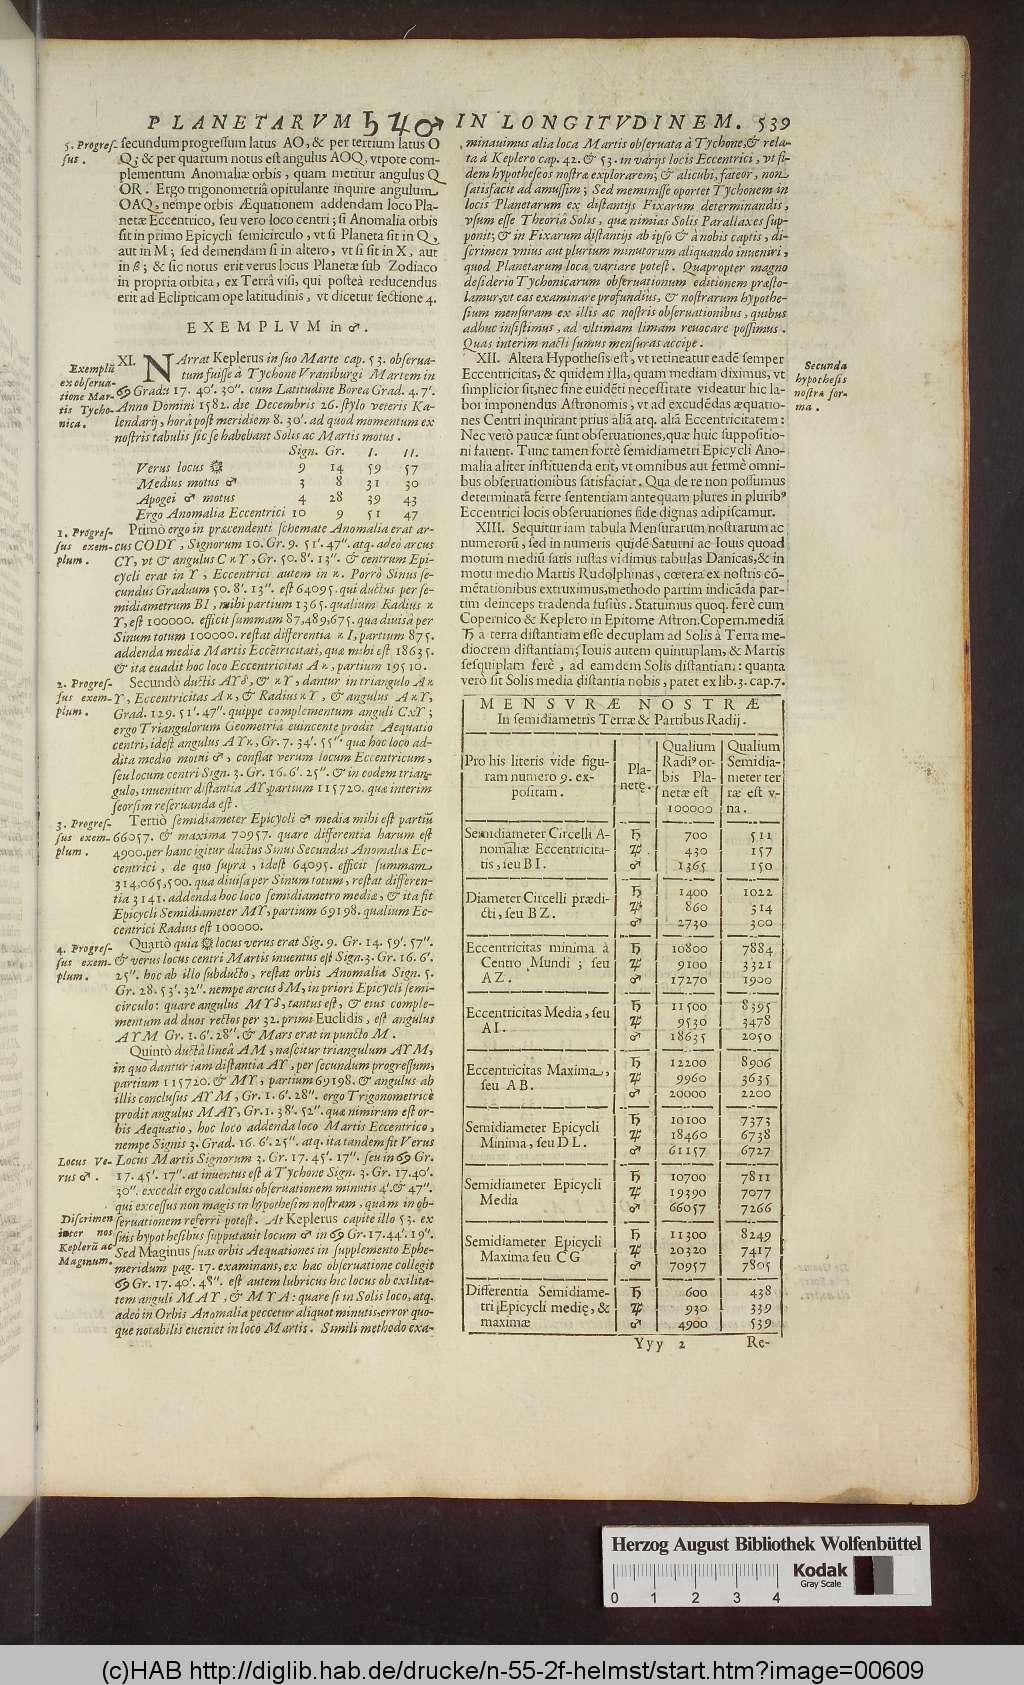 PLANETARVM ♄ ♃ ♂ IN LONGITVDINEM. 539
5. Progres-
sus.
secundum progressum latus AO, & per tertium latus O
Q; & per quartum notus est angulus AOQ, vtpote com-
plementum Anomaliæ orbis, quam metitur angulus Q
OR. Ergo trigonometriâ opitulante inquire angulum
OAQ, nempe orbis Æquationem addendam loco Pla-
netæ Eccentrico, seu vero loco centri; si Anomalia orbis
sit in primo Epicycli semicirculo, vt si Planeta sit in Q,
aut in M; sed demendam si in altero, vt si sit in X, aut
in β; & sic notus erit verus locus Planetæ sub Zodiaco
in propria orbita, ex Terrâ visi, qui posteà reducendus
erit ad Eclipticam ope latitudinis, vt dicetur sectione 4.
EXEMPLVM in ♂.
Exemplũ
ex obserua-
tione Mar-
tis Tycho-
nica.
XI. NArrat Keplerus in suo Marte cap. 53. obserua-
tum fuisse à Tychone Vraniburgi Martem in
♋ Grad: 17. 40'. 30''. cum Latitudine Borea Grad. 4. 7'.
Anno Domini 1582. die Decembris 26. stylo veteris Ka-
lendarij, horâ post meridiem 8. 30'. ad quod momentum ex
nostris tabulis sic se habebant Solis ac Martis motus.
Sign. Gr. I. II.
Verus locus ☼ 9 14 59 57
Medius motus ♂ 3 8 31 30
Apogei ♂ motus 4 28 39 43
Ergo Anomalia Eccentrici 10 9 51 47
1. Progres-
sus exem-
plum.
Primò ergo in præcendenti schemate Anomalia erat ar-
cus CODY, Signorum 10. Gr. 9. 51'. 47''. atq. adeò arcus
CY, vt & angulus C ϰ Y, Gr. 50. 8'. 13''. & centrum Epi-
cycli erat in Y, Eccentrici autem in ϰ. Porrò Sinus se-
cundus Graduum 50. 8'. 13''. est 64095. qui ductus per se-
midiametrum BI, mihi partium 1365. qualium Radius ϰ
Y, est 100000. efficit summam 87,489,675. qua diuisa per
Sinum totum 100000. restat differentia ϰ I, partium 875.
addenda mediæ Martis Eccẽtricitati, quæ mihi est 18635.
& ita euadit hoc loco Eccentricitas A ϰ, partium 19510.
2. Progres-
sus exem-
plum.
Secundò ductis AY♂, & ϰ Y, dantur in triangulo A ϰ
Y, Eccentricitas A ϰ, & Radius ϰ Y, & angulus A ϰ Y,
Grad. 129. 51'. 47''. quippe complementum anguli CϰY;
ergo Triangulorum Geometriâ euincente prodit Æquatio
centri, idest angulus AYϰ, Gr. 7. 34'. 55''. quæ hoc loco ad-
dita medio motui ♂, conflat verum locum Eccentricum,
seu locum centri Sign. 3. Gr. 16. 6'. 25''. & in eodem trian-
gulo, inuenitur distantia AY, partium 115720. quæ interim
seorsim reseruanda est.
3. Progres-
sus exem-
plum.
Tertiò semidiameter Epicycli ♂ media mihi est partiũ
66057. & maxima 70957. quare differentia harum est
4900. per hanc igitur ductus Sinus Secundus Anomaliæ Ec-
centrici, de quo suprà, idest 64095. efficit summam
314,065,500. qua diuisa per Sinum totum, restat differen-
tia 3141. addenda hoc loco semidiametro mediæ, & ita fit
Epicycli Semidiameter MY, partium 69198. qualium Ec-
centrici Radius est 100000.
4. Progres-
sus exem-
plum.
Quartò quia ☼ locus verus erat Sig. 9. Gr. 14. 59'. 57''.
& verus locus centri Martis inuentus est Sign. 3. Gr. 16. 6'.
25''. hoc ab illo subducto, restat orbis Anomalia Sign. 5.
Gr. 28. 53'. 32''. nempe arcus ♂M, in priori Epicycli semi-
circulo: quare angulus MY♂, tantus est, & eius comple-
mentum ad duos rectos per 32. primi Euclidis, est angulus
AYM Gr. 1. 6'. 28''. & Mars erat in puncto M.
Quintò ductâ lineâ AM, nascitur triangulum AYM,
in quo dantur iam distantia AY, per secundum progressum,
partium 115720. & MY, partium 69198. & angulus ab
illis conclusus AYM, Gr. 1. 6'. 28''. ergo Trigonometricè
prodit angulus MAY, Gr. 1. 38'. 52''. quæ nimirum est or-
bis Aequatio, hoc loco addenda loco Martis Eccentrico,
nempe Signis 3. Grad. 16. 6'. 25''. atq. ita tandem fit Verus
Locus Ve-
rus ♂.
Locus Martis Signorum 3. Gr. 17. 45'. 17''. seu in ♋ Gr.
17. 45'. 17''. at inuentus est à Tychone Sign. 3. Gr. 17. 40'.
30''. excedit ergo calculus obseruationem minutis 4'. & 47''.
qui excessus non magis in hypothesim nostram, quàm in ob-
Discrimen
inter nos
Keplerũ ac
Maginum.
seruationem referri potest. At Keplerus capite illo 53. ex
suis hypothesibus supputauit locum ♂ in ♋ Gr. 17. 44'. 19''.
Sed Maginus suas orbis Aequationes in supplemento Ephe-
meridum pag. 17. examinans, ex hac obseruatione collegit
♋ Gr. 17. 40'. 48''. est autem lubricus hic locus ob exilita-
tem anguli MAY, & MYA: quare si in Solis loco, atq.
adeò in Orbis Anomalia peccetur aliquot minutis, error quo-
que notabilis eueniet in loco Martis. Simili methodo exa-
minauimus alia loca Martis obseruata à Tychone, & rela-
ta à Keplero cap. 42. & 53. in varijs locis Eccentrici, vt fi-
dem hypotheseos nostræ explorarem; & alicubi, fateor, non
satisfacit ad amussim; Sed meminisse oportet Tychonem in
locis Planetarum ex distantijs Fixarum determinandis,
vsum esse Theoria Solis, quæ nimias Solis Parallaxes sup-
ponit; & in Fixarum distantijs ab ipso & à nobis captis, di-
scrimen vnius aut plurium minutorum aliquando inueniri,
quod Planetarum loca variare potest. Quapropter magno
desiderio Tychonicarum obseruationum editionem præsto-
lamur, vt eas examinare profundiùs, & nostrarum hypothe-
sium mensuram ex illis ac nostris obseruationibus, quibus
adhuc insistimus, ad vltimam limam reuocare possimus.
Quas interim nacti sumus mensuras accipe.
Secunda
hypothesis
nostra for-
ma.
XII. Altera Hypothesis est, vt retineatur eadẽ semper
Eccentricitas, & quidem illa, quam mediam diximus, vt
simplicior sit, nec sine euidẽti necessitate videatur hic la-
bor imponendus Astronomis, vt ad excudẽdas æquatio-
nes Centri inquirant prius aliã atq. aliã Eccentricitatem:
Nec verò paucæ sunt obseruationes, quæ huic suppositio-
ni fauent. Tunc tamen fortè semidiametri Epicycli Ano-
malia aliter instituenda erit, vt omnibus aut fermè omni-
bus obseruationibus satisfaciat. Qua de re non possumus
determinatã ferre sententiam antequam plures in pluribꝰ
Eccentrici locis obseruationes fide dignas adipiscamur.
XIII. Sequitur iam tabula Mensurarum nostrarum ac
numerorũ, sed in numeris quidẽ Saturni ac Iouis quoad
motum mediũ satis iustas vidimus tabulas Danicas, & in
motu medio Martis Rudolphinas, cœtera ex nostris cõ-
mẽtationibus extruximus, methodo partim indicãda par-
tim deinceps tradenda fusiùs. Statumus quoq. ferè cum
Copernico & Keplero in Epitome Astron. Copern. mediã
♄ a terra distantiam esse decuplam ad Solis à Terra me-
diocrem distantiam; Iouis autem quintuplam, & Martis
sesquiplam ferè, ad eamdem Solis distantiam: quanta
verò sit Solis media distantia nobis, patet ex lib. 3. cap. 7.
MENSVRÆ NOSTRÆ
In semidiametris Terræ & Partibus Radij.
Pro his literis vide figu-
ram numero 9. ex-
positam.
Pla-
netę.
Qualium
Radiꝰ or-
bis Pla-
netæ est
100000
Qualium
Semidia-
meter ter
ræ est v-
na.
Semidiameter Circelli A- ♄ 700 511
nomaliæ Eccentricita- ♃ 430 157
tis, seu BI. ♂ 1365 150
Diameter Circelli prædi- ♄ 1400 1022
cti, seu BZ. ♃ 860 314
♂ 2730 300
Eccentricitas minima à ♄ 10800 7884
Centro Mundi; seu ♃ 9100 3321
AZ. ♂ 17270 1900
Eccentricitas Media, seu ♄ 11500 8395
AI. ♃ 9530 3478
♂ 18635 2050
Eccentricitas Maxima, ♄ 12200 8906
seu AB. ♃ 9960 3635
♂ 20000 2200
Semidiameter Epicycli ♄ 10100 7373
Minima, seu DL. ♃ 18460 6738
♂ 61157 6727
Semidiameter Epicycli ♄ 10700 7811
Media ♃ 19390 7077
♂ 66057 7266
Semidiameter Epicycli ♄ 11300 8249
Maxima seu CG ♃ 20320 7417
♂ 70957 7805
Differentia Semidiame- ♄ 600 438
tri Epicycli medię, & ♃ 930 339
maximæ ♂ 4900 539
Yyy 2 Re-
Herzog August Bibliothek Wolfenbüttel
Kodak
Gray Scale
0 1 2 3 4
(c)HAB http://diglib.hab.de/drucke/n-55-2f-helmst/start.htm?image=00609